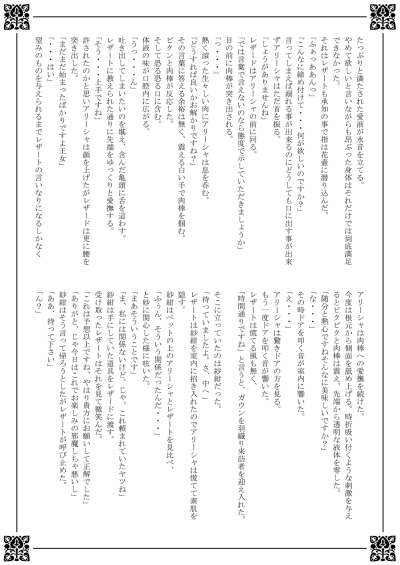 たっぷりと満たされた愛液が水音を立てる。
やめて欲しいと言いながらも昂ぶった身体はそれだけでは到底満足
できなかった。
それはレザードも承知の事で指は花壷に潜り込んだ。
「ふぁっああんっ」
「こんなに締め付けて・・・何が欲しいのですか？」
言ってしまえば溺れる事が出来るのにどうしても口に出す事が出来
ずアリーシャはただ首を振る。
「しょうがありませんね」
レザードはアリーシャの前に回る。
「では言葉で言えないのなら態度で示していただきましょうか」
目の前に肉棒が突き出される。
「っ・・・」
熱く滾った生々しい肉にアリーシャは息を呑む。
「どうすれば良いかお解かりですね？」
その言葉に答える余裕は無く、震える白い手で肉棒を掴む。
ビクンと肉棒が反応した。
そして恐る恐る口に含む。
体液の味が口腔内に広がる。
「うっ・・・ん」
吐き出してしまいたいのを堪え、含んだ亀頭に舌を這わす。
レザードに教えられた通りに先端をゆっくりと愛撫する。
「そう・・・上手ですね」
許されたのかと思いアリーシャは顔を上げたがレザードは更に腰を
突き出した。
「まだまだ始まったばかりですよ王女」
「・・・はい」
望みのものを与えられるまでレザードの言いなりになるしかなく
アリーシャは肉棒への愛撫を続けた。
今度は根元から側面を舐め上げる。時折吸い付くような刺激を与え
るとビクビクと肉棒は震え、先端から透明な液体を零した。
「随分と熱心ですねそんなに美味しいですか？」
「な・・・」
その時ドアを叩く音が室内に響いた。
「え・・・」
アリーシャは驚きドアの方を見る。
もう一度ドアを叩く音が響いた。
レザードは慌てる風も無く、
「時間通りですね」と言うと、ガウンを羽織り来訪者を迎え入れた。

そこに立っていたのは紗紺だった。
「待っていましたよ。さ、中へ」
レザードは紗紺を室内に招き入れたのでアリーシャは慌てて素肌を
隠す。
紗紺はベットの上のアリーシャとレザードを見比べ、
「ふぅん、そういう関係だったんだ・・・」
と妙に関心した様に呟いた。
「まあそういうことです」
「ま、私には関係ないけど、じゃ、これ頼まれていたヤツね」
紗紺は手にしていた道具をレザードに渡す。
受け取ったレザードはそれを見て微笑んだ。
「これは予想以上ですね、やはり貴方にお願いして正解でした」
「ありがと、じゃ今日はこれでお楽しみの邪魔しちゃ悪いし」
紗紺はそう言って帰ろうとしたがレザードが呼び止めた。
「ああ、待って下さい」
「ん？」